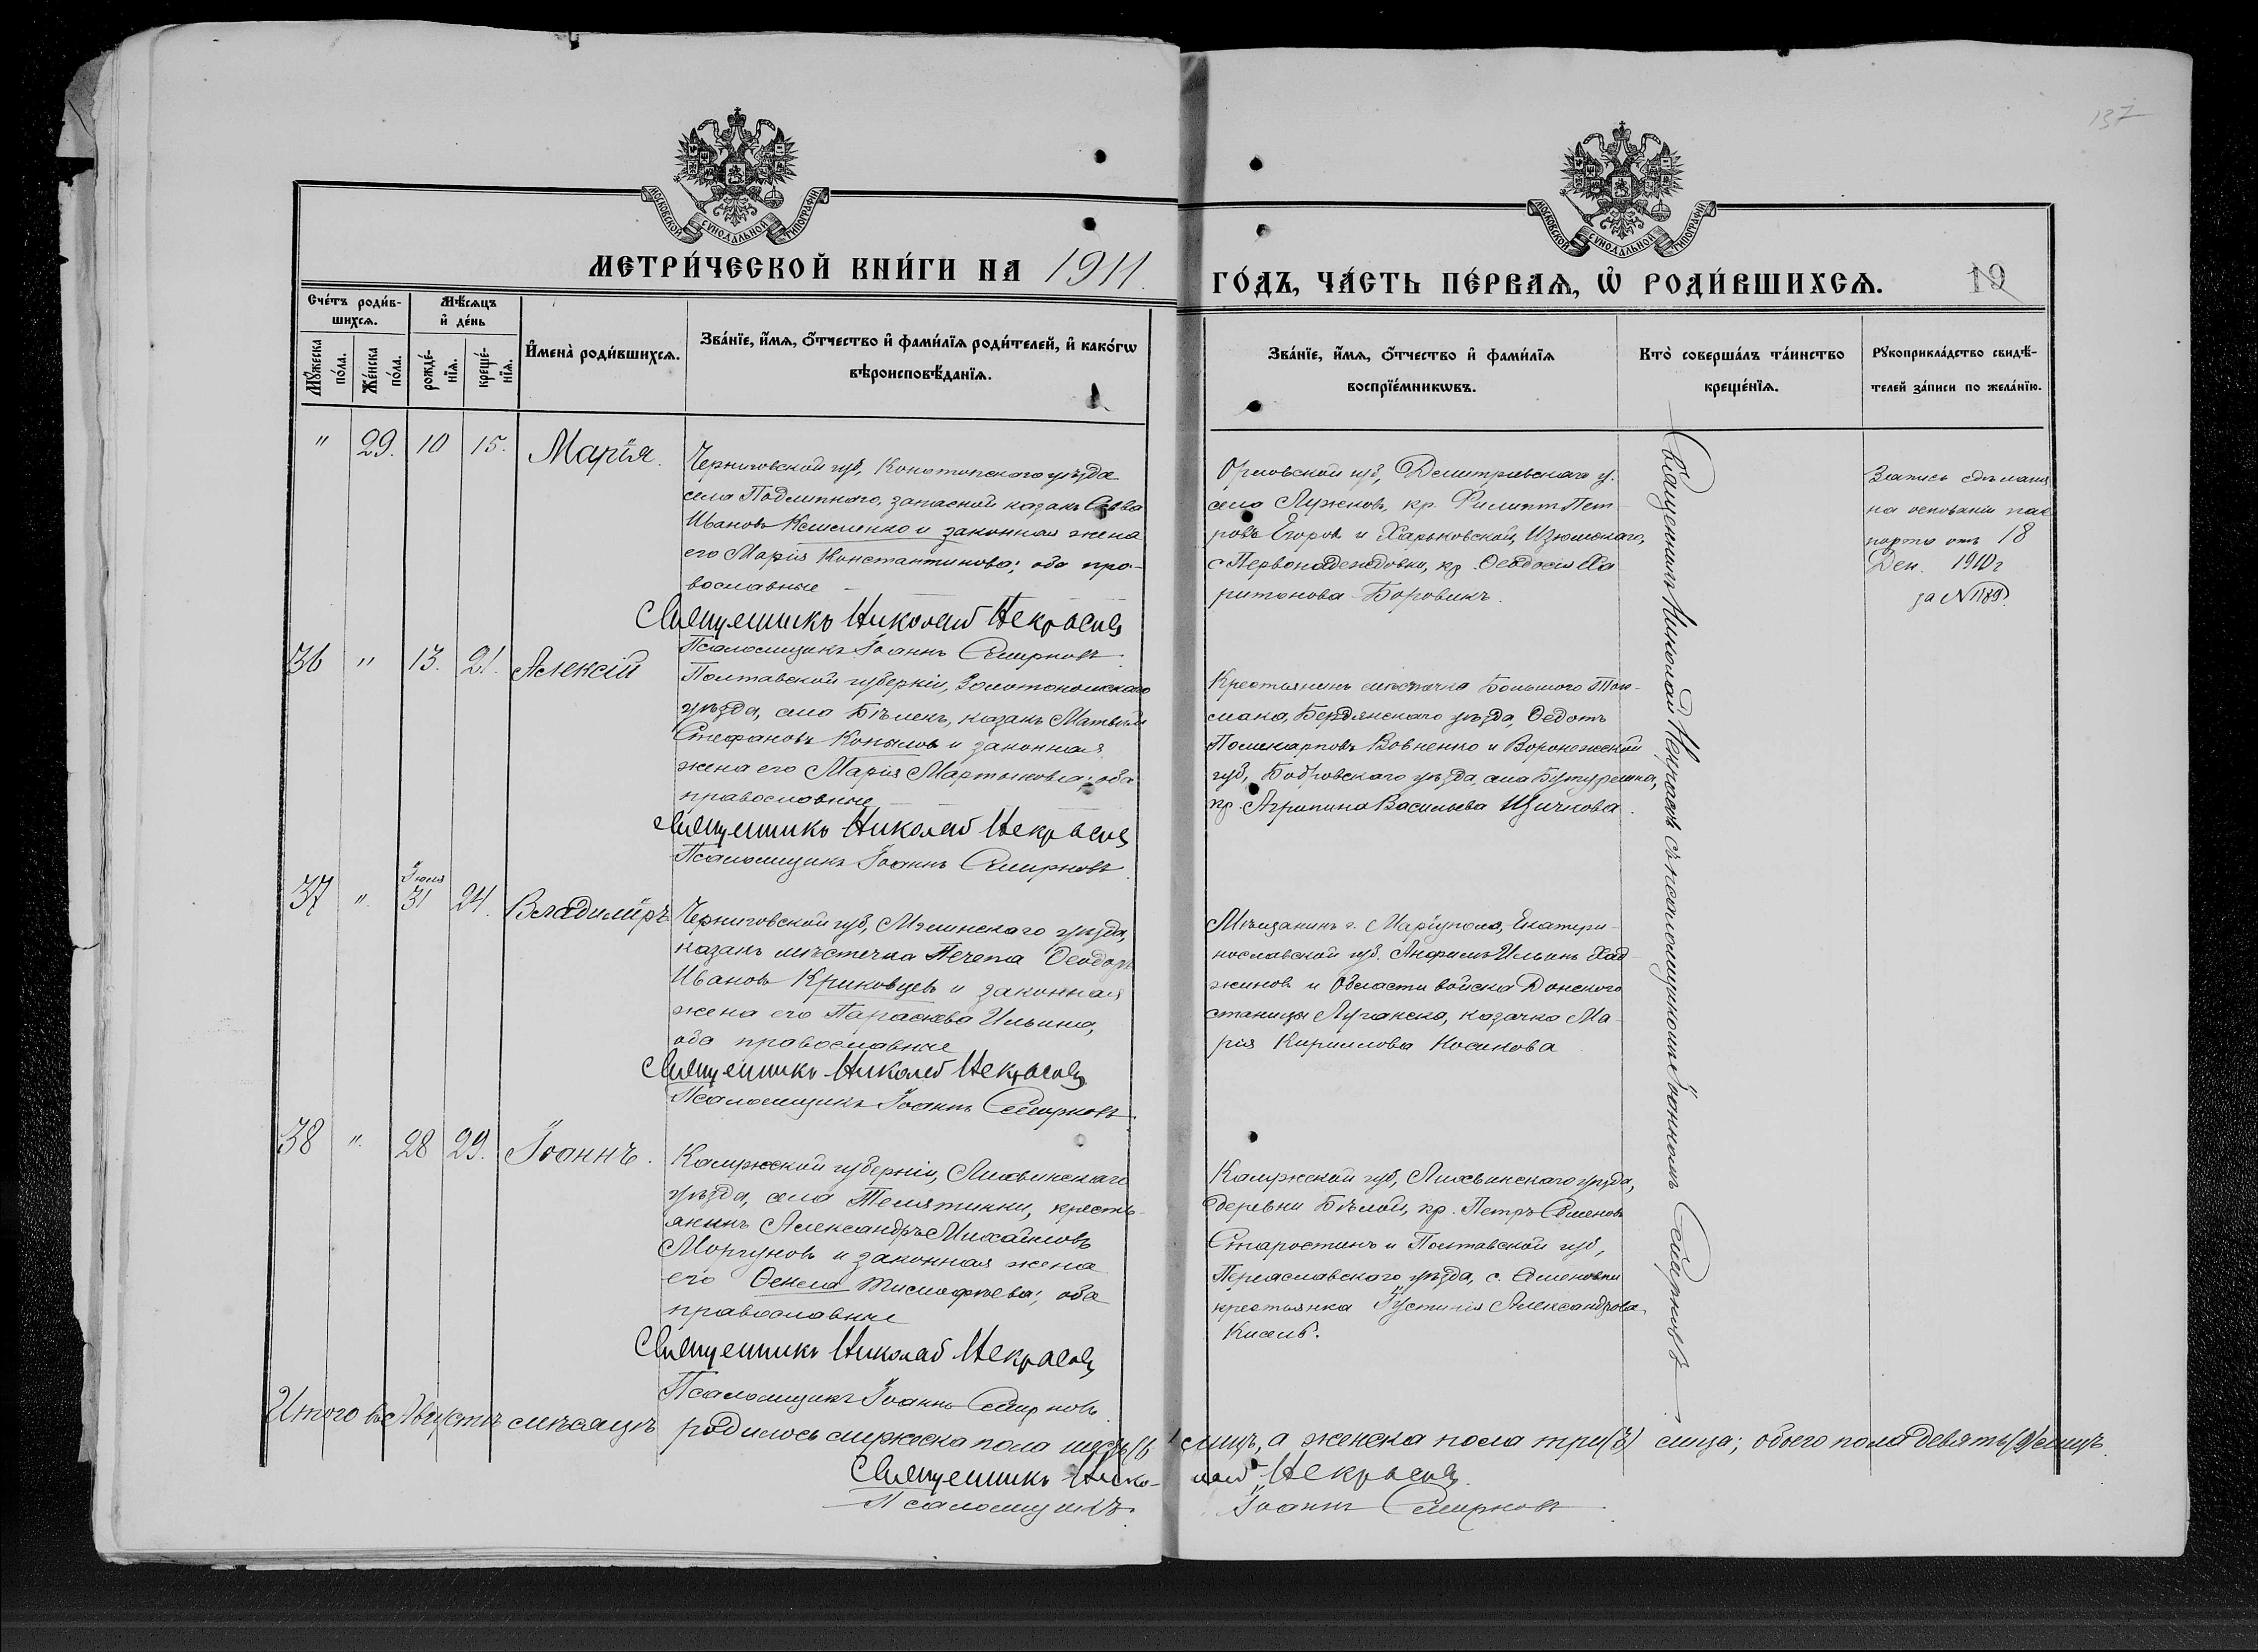 137
МОСКОВСКОЙ СѴНОДАЛЬНОЙ ТИПОГРАФІИ
МОСКОВСКОЙ СѴНОДАЛЬНОЙ ТИПОГРАФІИ
МЕТРИ́ЧЕСКОЙ КНИ́ГИ НА 1911.
ГО́ДЪ, ЧА́СТЬ ПЕ́РВАѦ, Ѽ РОДИ́ВШИХСѦ. 19
Сче́тъ роди́вшихсѧ.
Мꙋ́жеска по́ла.
Же́нска по́ла.
Мѣ́сѧцъ и҆ де́нь
рожде́нїѧ.
креще́нїѧ.
И҆мена̀ роди́вшихсѧ.
Зва́нїе, и҆́мѧ, ѻ҆́тчество и҆ фами́лїѧ роди́телей, и҆ како́гѡ
вѣроисповѣ́данїѧ.
Зва́нїе, и҆́мѧ, ѻ҆́тчество и҆ фами́лїѧ
воспрїе́мникѡвъ.
Кто̀ соверша́лъ та́инство
креще́нїѧ.
Рꙋкоприкла́дство свидѣ́-
телей за́писи по жела́нїю.
" 29. 10 15. Марія.
Черниговской губ, Конотопскаго уѣзда
села Подлипнаго, запасной казакъ Савва
Ивановъ Клименко и законная жена
его Марія Константинова; оба пра-
вославные
Священникъ Николай Некрасовъ
Псаломщикъ Іоаннъ Смирновъ.
Орловской губ, Дмитровскаго у.
села Лужковъ, кр. Филиппъ Пет-
ровъ Егоровъ и Харьковской, Изюмскаго,
с Первонадеждовки, кр. Ѳеодосія Ха
ритонова Боровикъ.
Запись сдѣлана
на основаніи пас
порта отъ 18
Дек. 1910 г
за № 1189.
36 " 13. 21. Алексій
Полтавской губерніи, Золотоношскаго
уѣзда, села Бѣлекъ, казакъ Матвѣй
Стефановъ Копыловъ и законная
жена его Марія Мартынова; оба
православные
Священникъ Николай Некрасовъ
Псаломщикъ Іоаннъ Смирновъ.
Крестьянинъ мѣстечка Большого Ток-
мака, Бердянскаго уѣзда, Ѳедотъ
Поликарповъ Вовненко и Воронежской
губ, Бобровскаго уѣзда, села Бутурлинка,
кр. Агрипина Васильева Щичкова.
37 " Іюля 31 24. Владиміръ
Черниговской губ, Мглинскаго уѣзда,
казакъ мѣстечка Почепа Ѳеодоръ
Ивановъ Криковцевъ и законная
жена его Параскева Ильина,
оба православные
Священникъ Николай Некрасовъ
Псаломщикъ Іоаннъ Смирновъ.
Мѣщанинъ г. Маріуполя, Екатери-
нославской губ. Анфимъ Ильинъ Хад-
жиновъ и Области войска Донского
станицы Луганска, казачка Ма-
рія Кириллова Косикова
38 " 28 29. Іоаннъ.
Калужской губерніи, Лихвинскаго
уѣзда, села Телятинки, кресть-
янинъ Александръ Михайловъ
Моргуновъ и законная жена
его Ѳекла Тимофѣева; оба
православные
Священникъ Николай Некрасовъ
Псаломщикъ Іоаннъ Смирновъ.
Калужской губ, Лихвинскаго уѣзда,
деревни Бѣлой, кр. Петръ Семеновъ
Старостинъ и Полтавской губ,
Переяславскаго уѣзда, с. Семеновки
крестьянка Іустинія Александрова
Кисель.
Священникъ Николай Некрасовъ съ псаломщикомъ Іоанномъ Смирновъ
Итого въ Августѣ мѣсяцѣ родилось мужеска пола шесть (6) лицъ, а женска пола три (3) лица; обоего пола девять (9) лицъ.
Священникъ Николай Некрасовъ.
Псаломщикъ Іоаннъ Смирновъ.